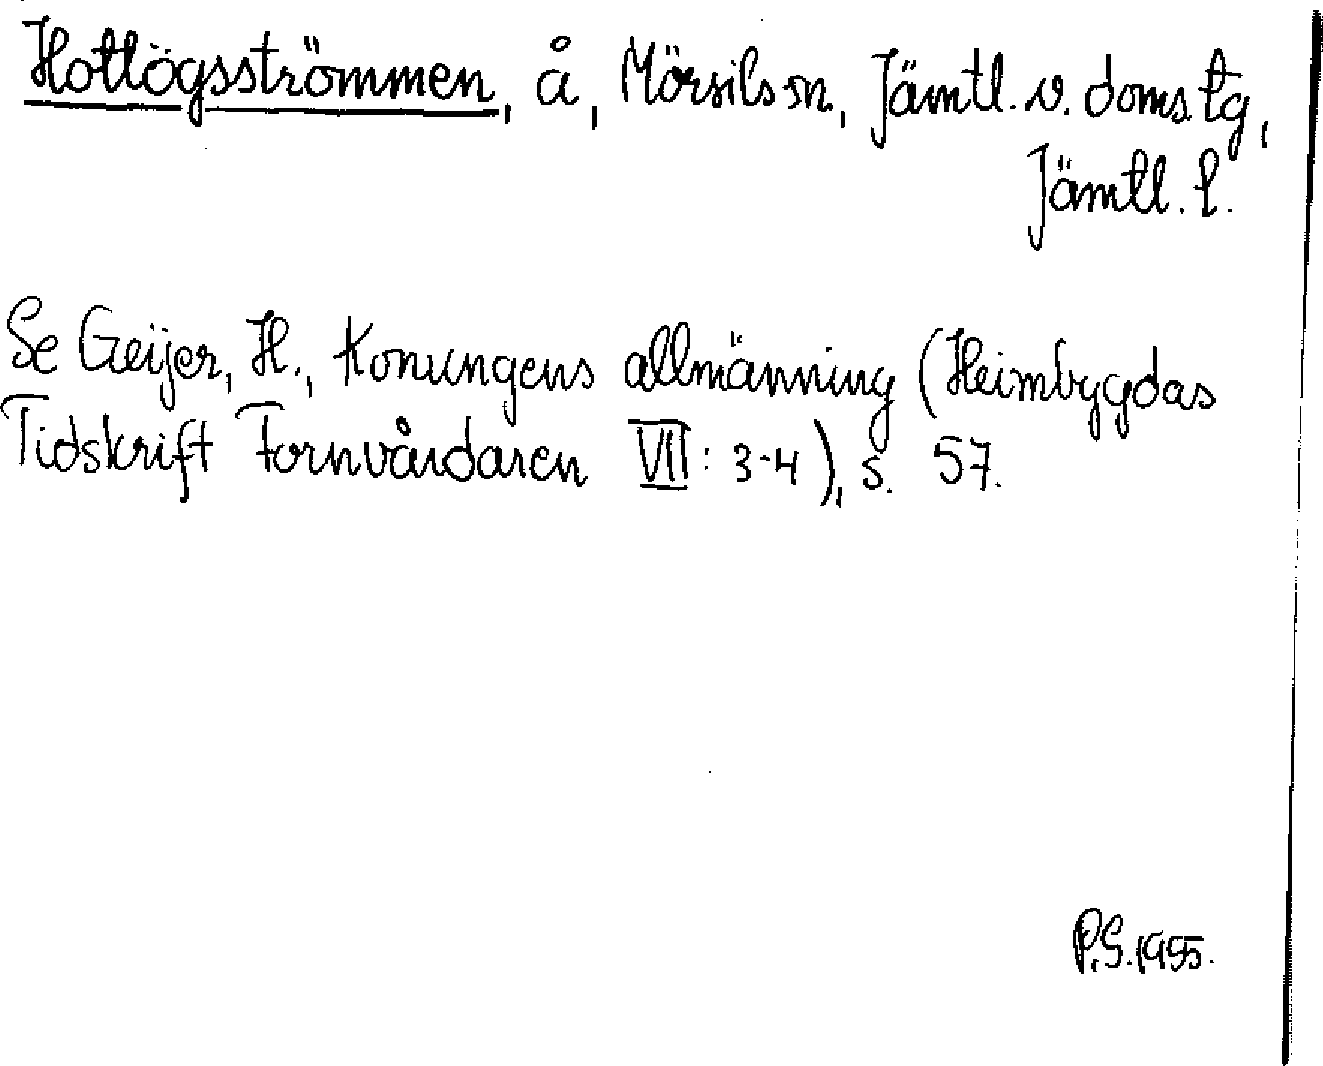 Hotlögsströmmen, å, Mörsils sn, Jämtl. v. doms. tg,
Jämtl. l.
Se Geijer, H., Konungens allmänning (Heimbygdas
Tidskrift Fornvårdaren VII: 3-4), s. 57.
P.G. 1955.